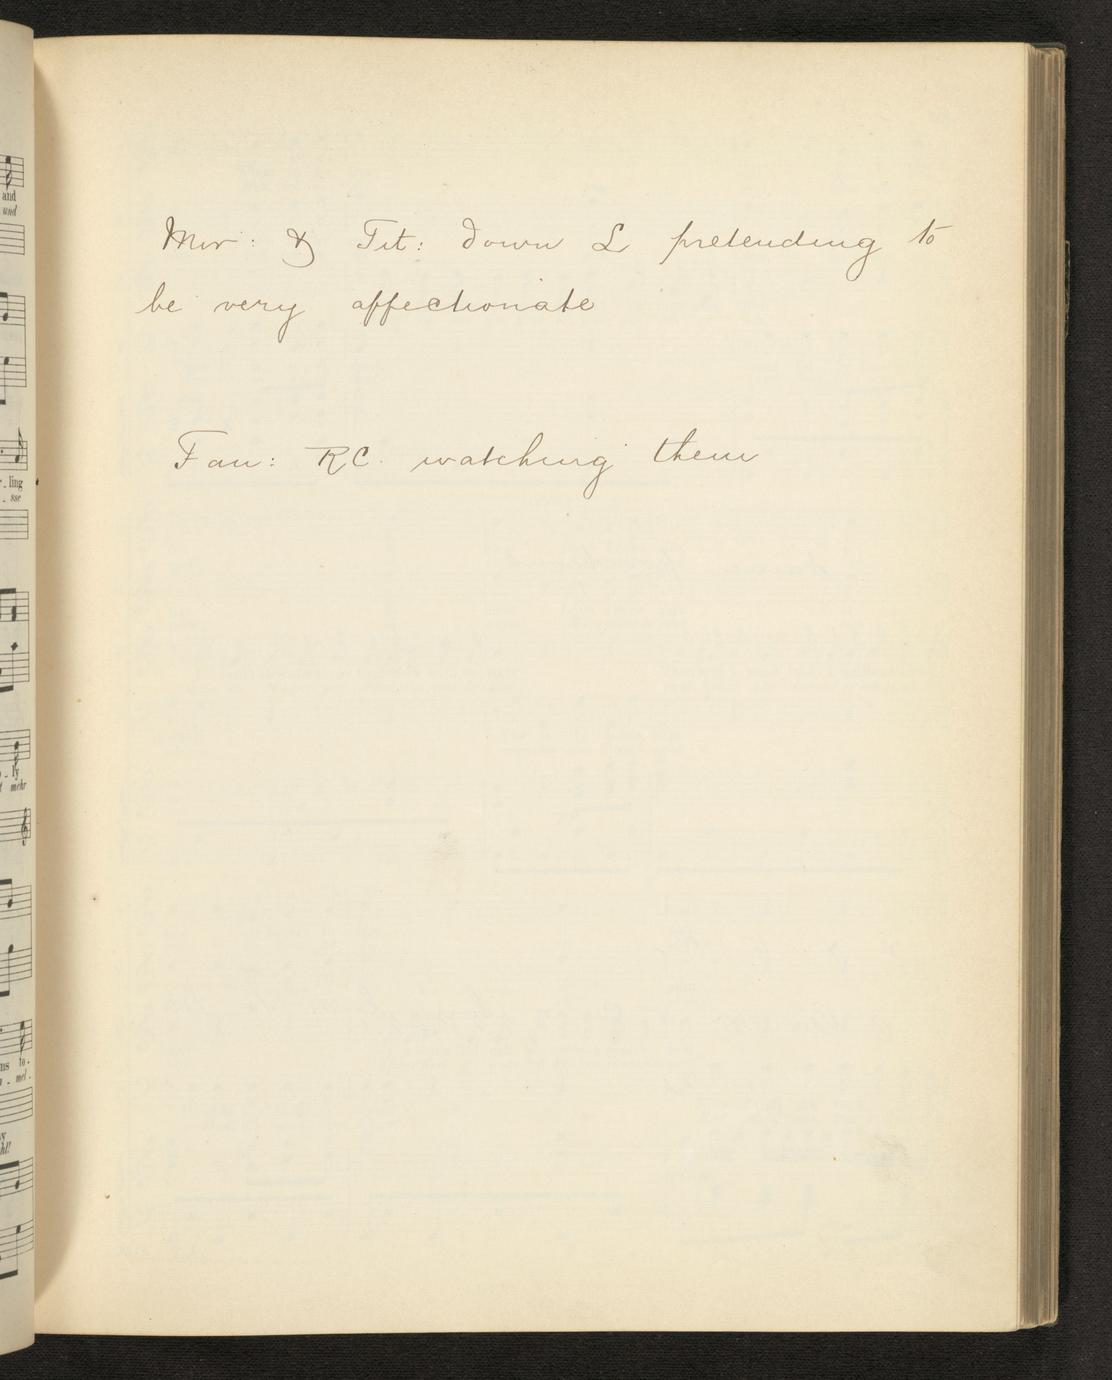 and
und
Mir: & Tit: down L pretending to
be very affectionate
Fan: RC. watching them
ling
sse
ly
mehr
to-
mel-